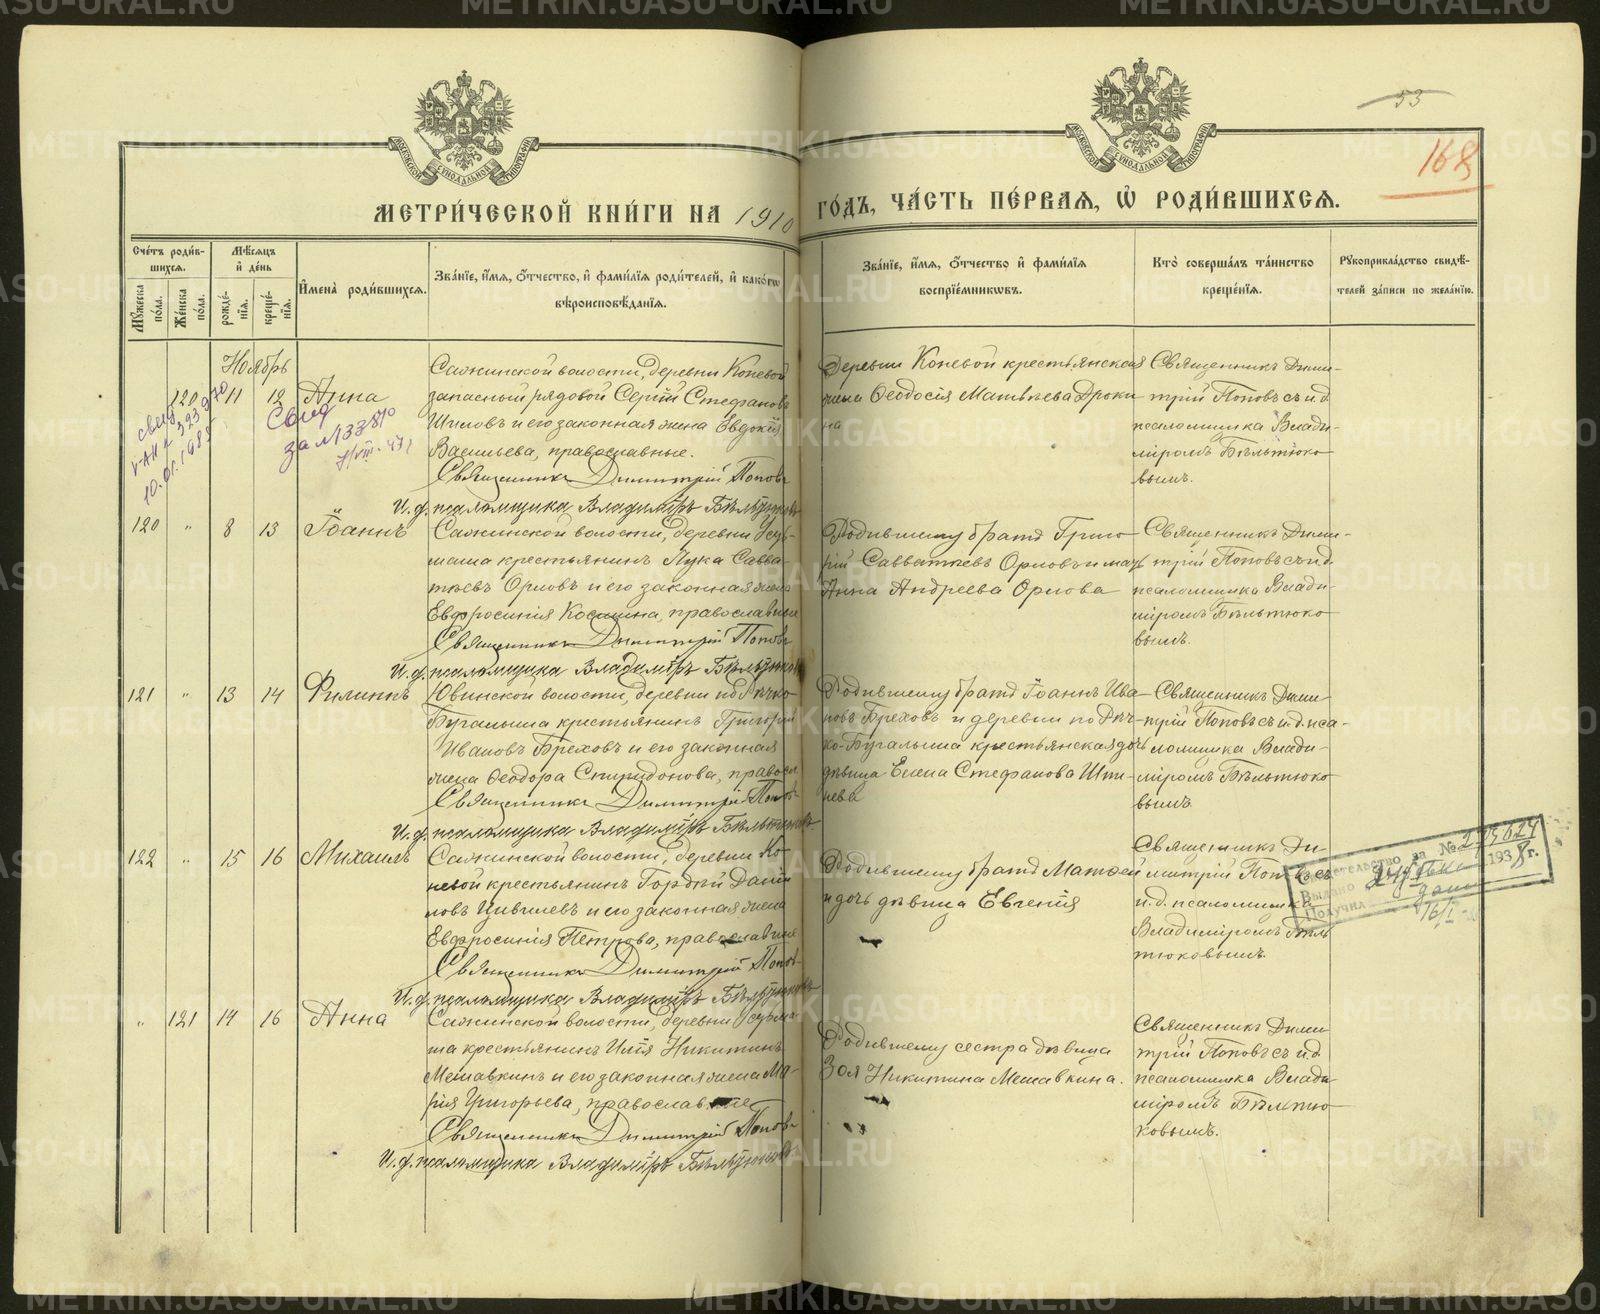 53
168
МЕТРИ́ЧЕСКОЙ КНИ́ГИ НА 1910 ГО́ДЪ, ЧА́СТЬ ПЕ́РВАЯ, Ѡ҆ РОДИ́ВШИХСЯ.
Сче́тъ роди́вшихся.
Му́жеска по́ла.
Же́нска по́ла.
Мѣ́сяцъ и҆ де́нь
рожде́нїя.
креще́нїя.
И҆мена̀ роди́вшихся.
Зва́нїе, и҆́мя, ѻ҆́тчество, и҆ фами́лїя роди́телей, и҆ како́гѡ
вѣроисповѣ́данїя.
Зва́нїе, и҆́мя, ѻ҆́тчество и҆ фами́лїя
воспрїе́мниковъ.
Кто̀ соверша́лъ та́инство
креще́нїя.
Рꙋкоприкла́дство свидѣ́-
телей за́писи по жела́нїю.
Ноябрь
120 11 12 Анна
Сажинской волости, деревни Коневой
запасный рядовой Сергій Стефановъ
Шиловъ и его законная жена Евдокія
Васильева, православные.
Священникъ Димитрій Поповъ
И. д. псаломщика Владиміръ Бѣльтюковъ
Деревни Коневой крестьянская
жена Ѳеодосія Матвѣева Дроки
на
Священникъ Дими-
трій Поповъ съ и.д.
псаломщика Влади-
міромъ Бѣльтюко
вымъ.
120 „ 8 13 Іоаннъ
Сажинской волости, деревни Усть-
маша крестьянинъ Лука Савва-
тѣевъ Орловъ и его законная жена
Евфросинія Косьмина, православные
Священникъ Димитрій Поповъ
И. д. псаломщика Владиміръ Бѣльтюковъ
Родившему братъ Григо
рій Савватѣевъ Орловъ и мать
Анна Андреева Орлова
Священникъ Дими-
трій Поповъ съ и.д.
псаломщика Влади-
міромъ Бѣльтюко
вымъ.
121 „ 13 14 Филиппъ
Ювинской волости, деревни
Бугалыша крестьянинъ Григорій
Ивановъ Бреховъ и его законная
жена Ѳеодора Спиридонова, правосл.
Священникъ Димитрій Поповъ
И. д. псаломщика Владиміръ Бѣльтюковъ
Родившему братъ Іоаннъ Ива
новъ Бреховъ и деревни
Бугалыша крестьянская дочь
дѣвица Елена Стефанова
нева
Священникъ Дими
трій Поповъ съ и.д. пса-
ломщика Влади-
міромъ Бѣльтюко
вымъ
122 „ 15 16 Михаилъ
Сажинской волости, деревни Ко-
невой крестьянинъ Гордѣй Дани
ловъ Цивилевъ и его законная жена
Евфросинія Петрова, православные
Священникъ Димитрій Поповъ
И. д. псаломщика Владиміръ Бѣльтюковъ
Родившему братъ Матѳей
и дочь дѣвица Евгенія
Священникъ Ди
митрій Поповъ съ
и.д. псаломщика
Владиміромъ Бѣль
тюковымъ.
Свидетельство за №
Выдано 1938 г.
Получил
„ 121 14 16 Анна
Сажинской волости, деревни Устьма
ша крестьянинъ Илія Никитинъ
Мешавкинъ и его законная жена Ма-
рія Григорьева, православные
Священникъ Димитрій Поповъ
И. д. псаломщика Владиміръ Бѣльтюковъ
Родившему сестра дѣвица
Зоя Никитина Мешавкина.
Священникъ Дими
трій Поповъ съ и.д.
псаломщика Влади
міромъ Бѣльтю
ковымъ.
METRIKI.GASO-URAL.RU